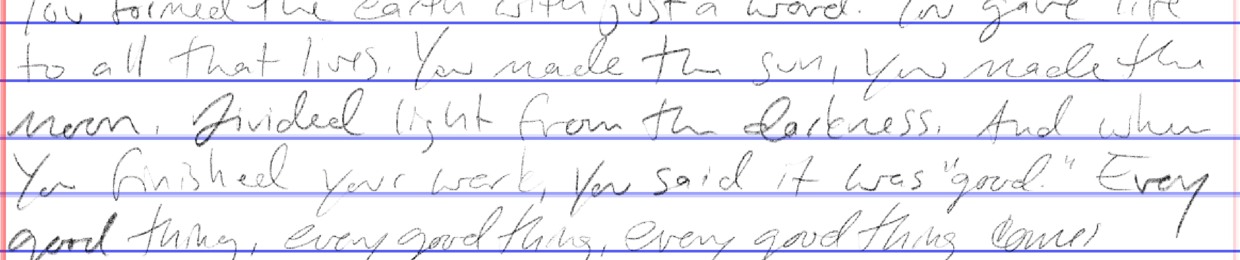 You formed the earth with just a word. You gave life
to all that lives. You made the sun, you made the
moon. Divided light from the darkness. And when
You finished your work, you said it was "good." Every
good thing, every good thing, every good thing comes